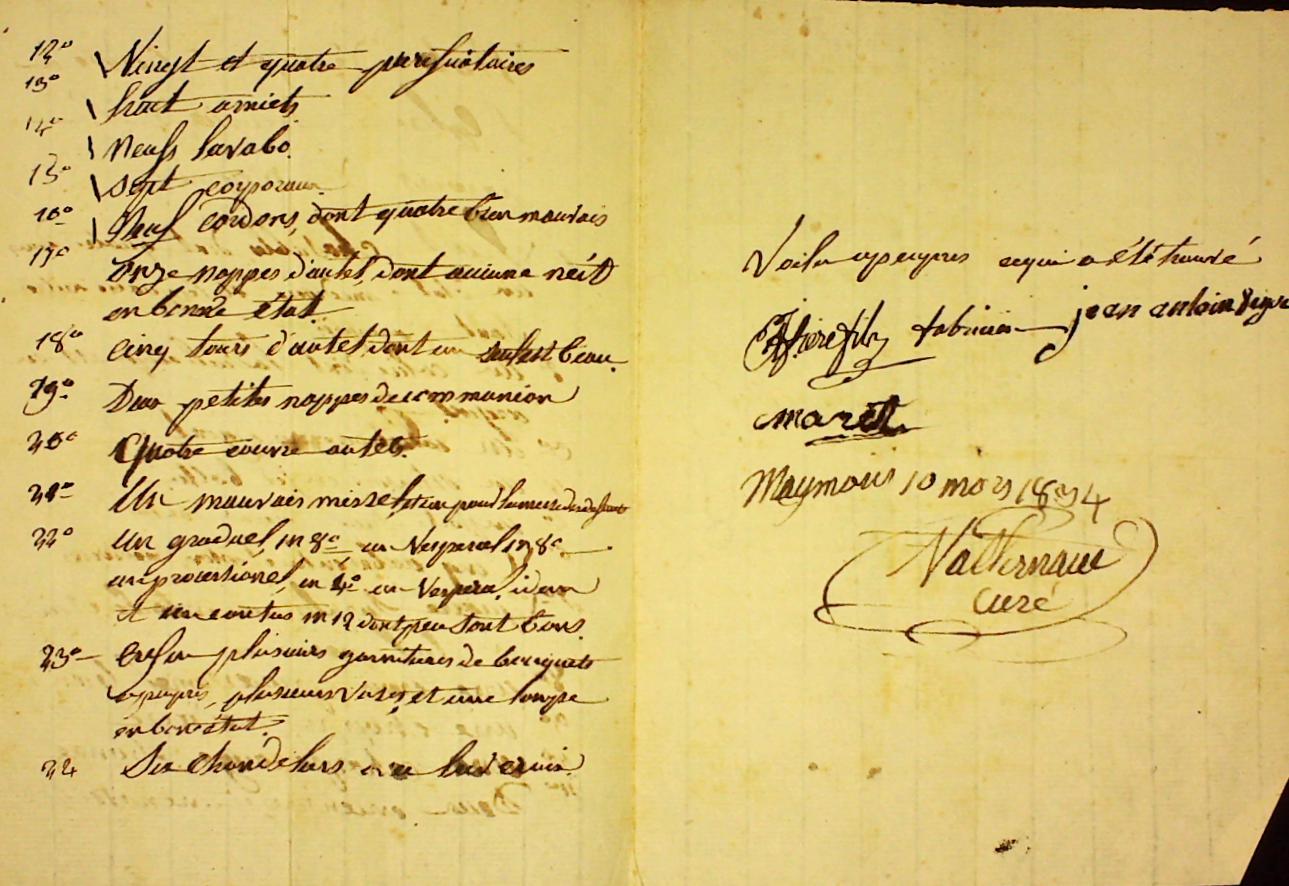 12° Vingt et quatre purificatoires
13° huit amicts
14° neufs lavabo.
15° Sept corporaux
16° Neuf cordons, dont quatre bien mauvais
17° Onze nappes d'autel, dont aucune n'est
en bonne état.
18° cinq tours d'autel dont un seul est beau.
19° Deux petites nappes de communion
20° Quatre couvre autels.
21° Un mauvais missel, et un pour la messe des defunts
22° Un graduel, in 8°, un Vesperal in 8°
un processionel, in 4° un Vesperal, idem
et un cantus in 12 dont peu sont bons.
23° Enfin plusieurs garnitures de bouquets
apeuprés, plusieurs vases, et une lampe
en bon état.
24 Six chandeliers avec leur croix
Voila apeupres cequi a été trouvé
fils fabricien jean antoin
maret
Maymons 10 mars 1834
curé